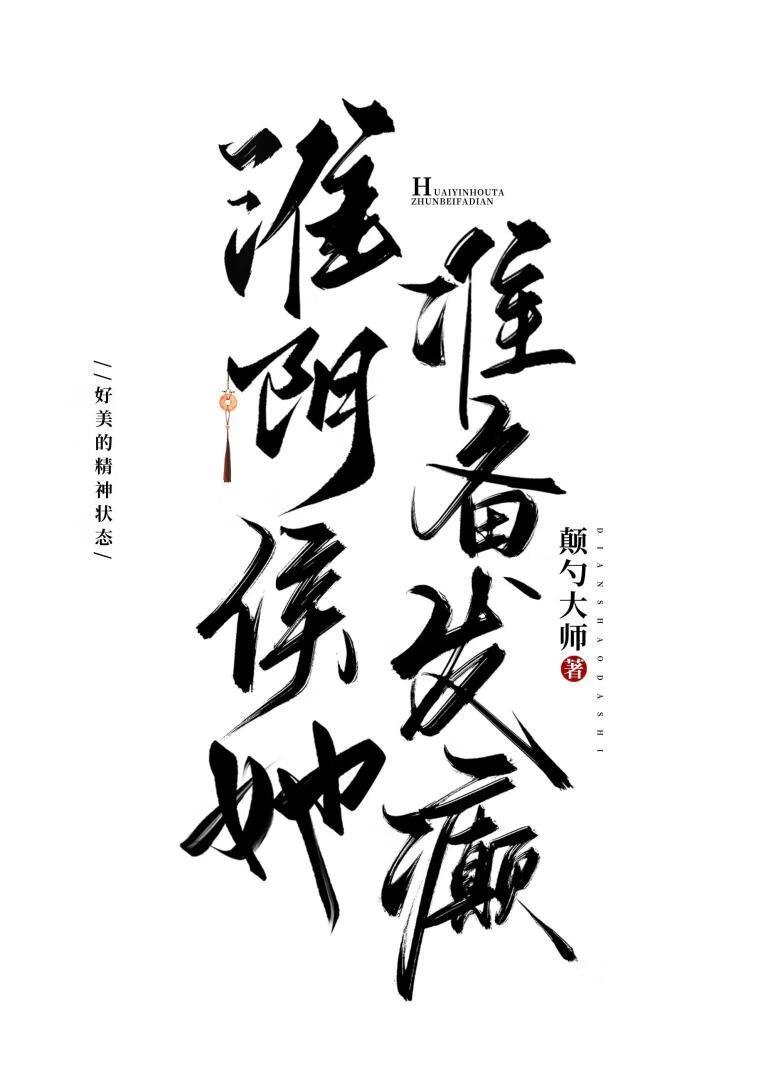 淮阴侯她
准备发癫
HUAIYINHOUTA
ZHUNBEIFADIAN
//好美的精神状态/
颠勺大师 著
DIANSHAODASHI